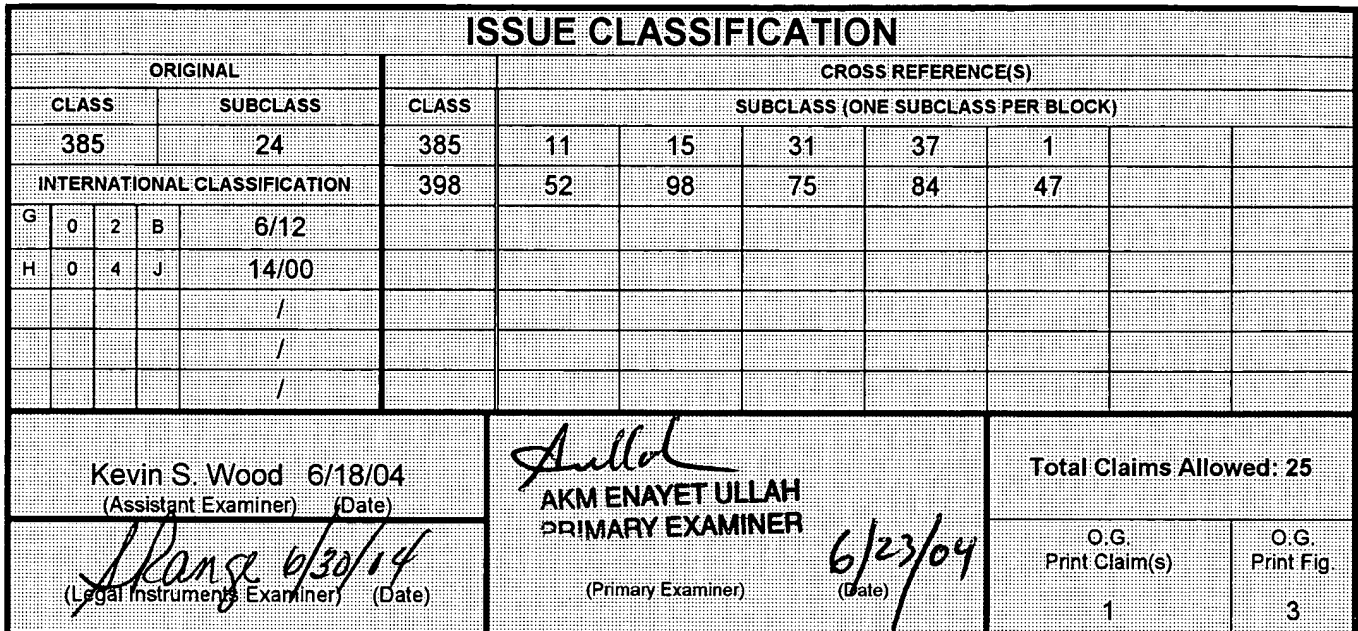 ISSUE CLASSIFICATION
ORIGINAL CROSS REFERENCE(S)
CLASS SUBCLASS CLASS SUBCLASS (ONE SUBCLASS PER BLOCK)
385 24 385 11 15 31 37 1
INTERNATIONAL CLASSIFICATION 398 52 98 75 84 47
G 0 2 B 6/12
H 0 4 J 14/00
/
/
/
Kevin S. Wood 6/18/04
(Assistant Examiner) (Date)
6/30/04
(Legal Instruments Examiner) (Date)
AKM ENAYET ULLAH
PRIMARY EXAMINER
6/23/04
(Primary Examiner) (Date)
Total Claims Allowed: 25
O.G. O.G.
Print Claim(s) Print Fig.
1 3